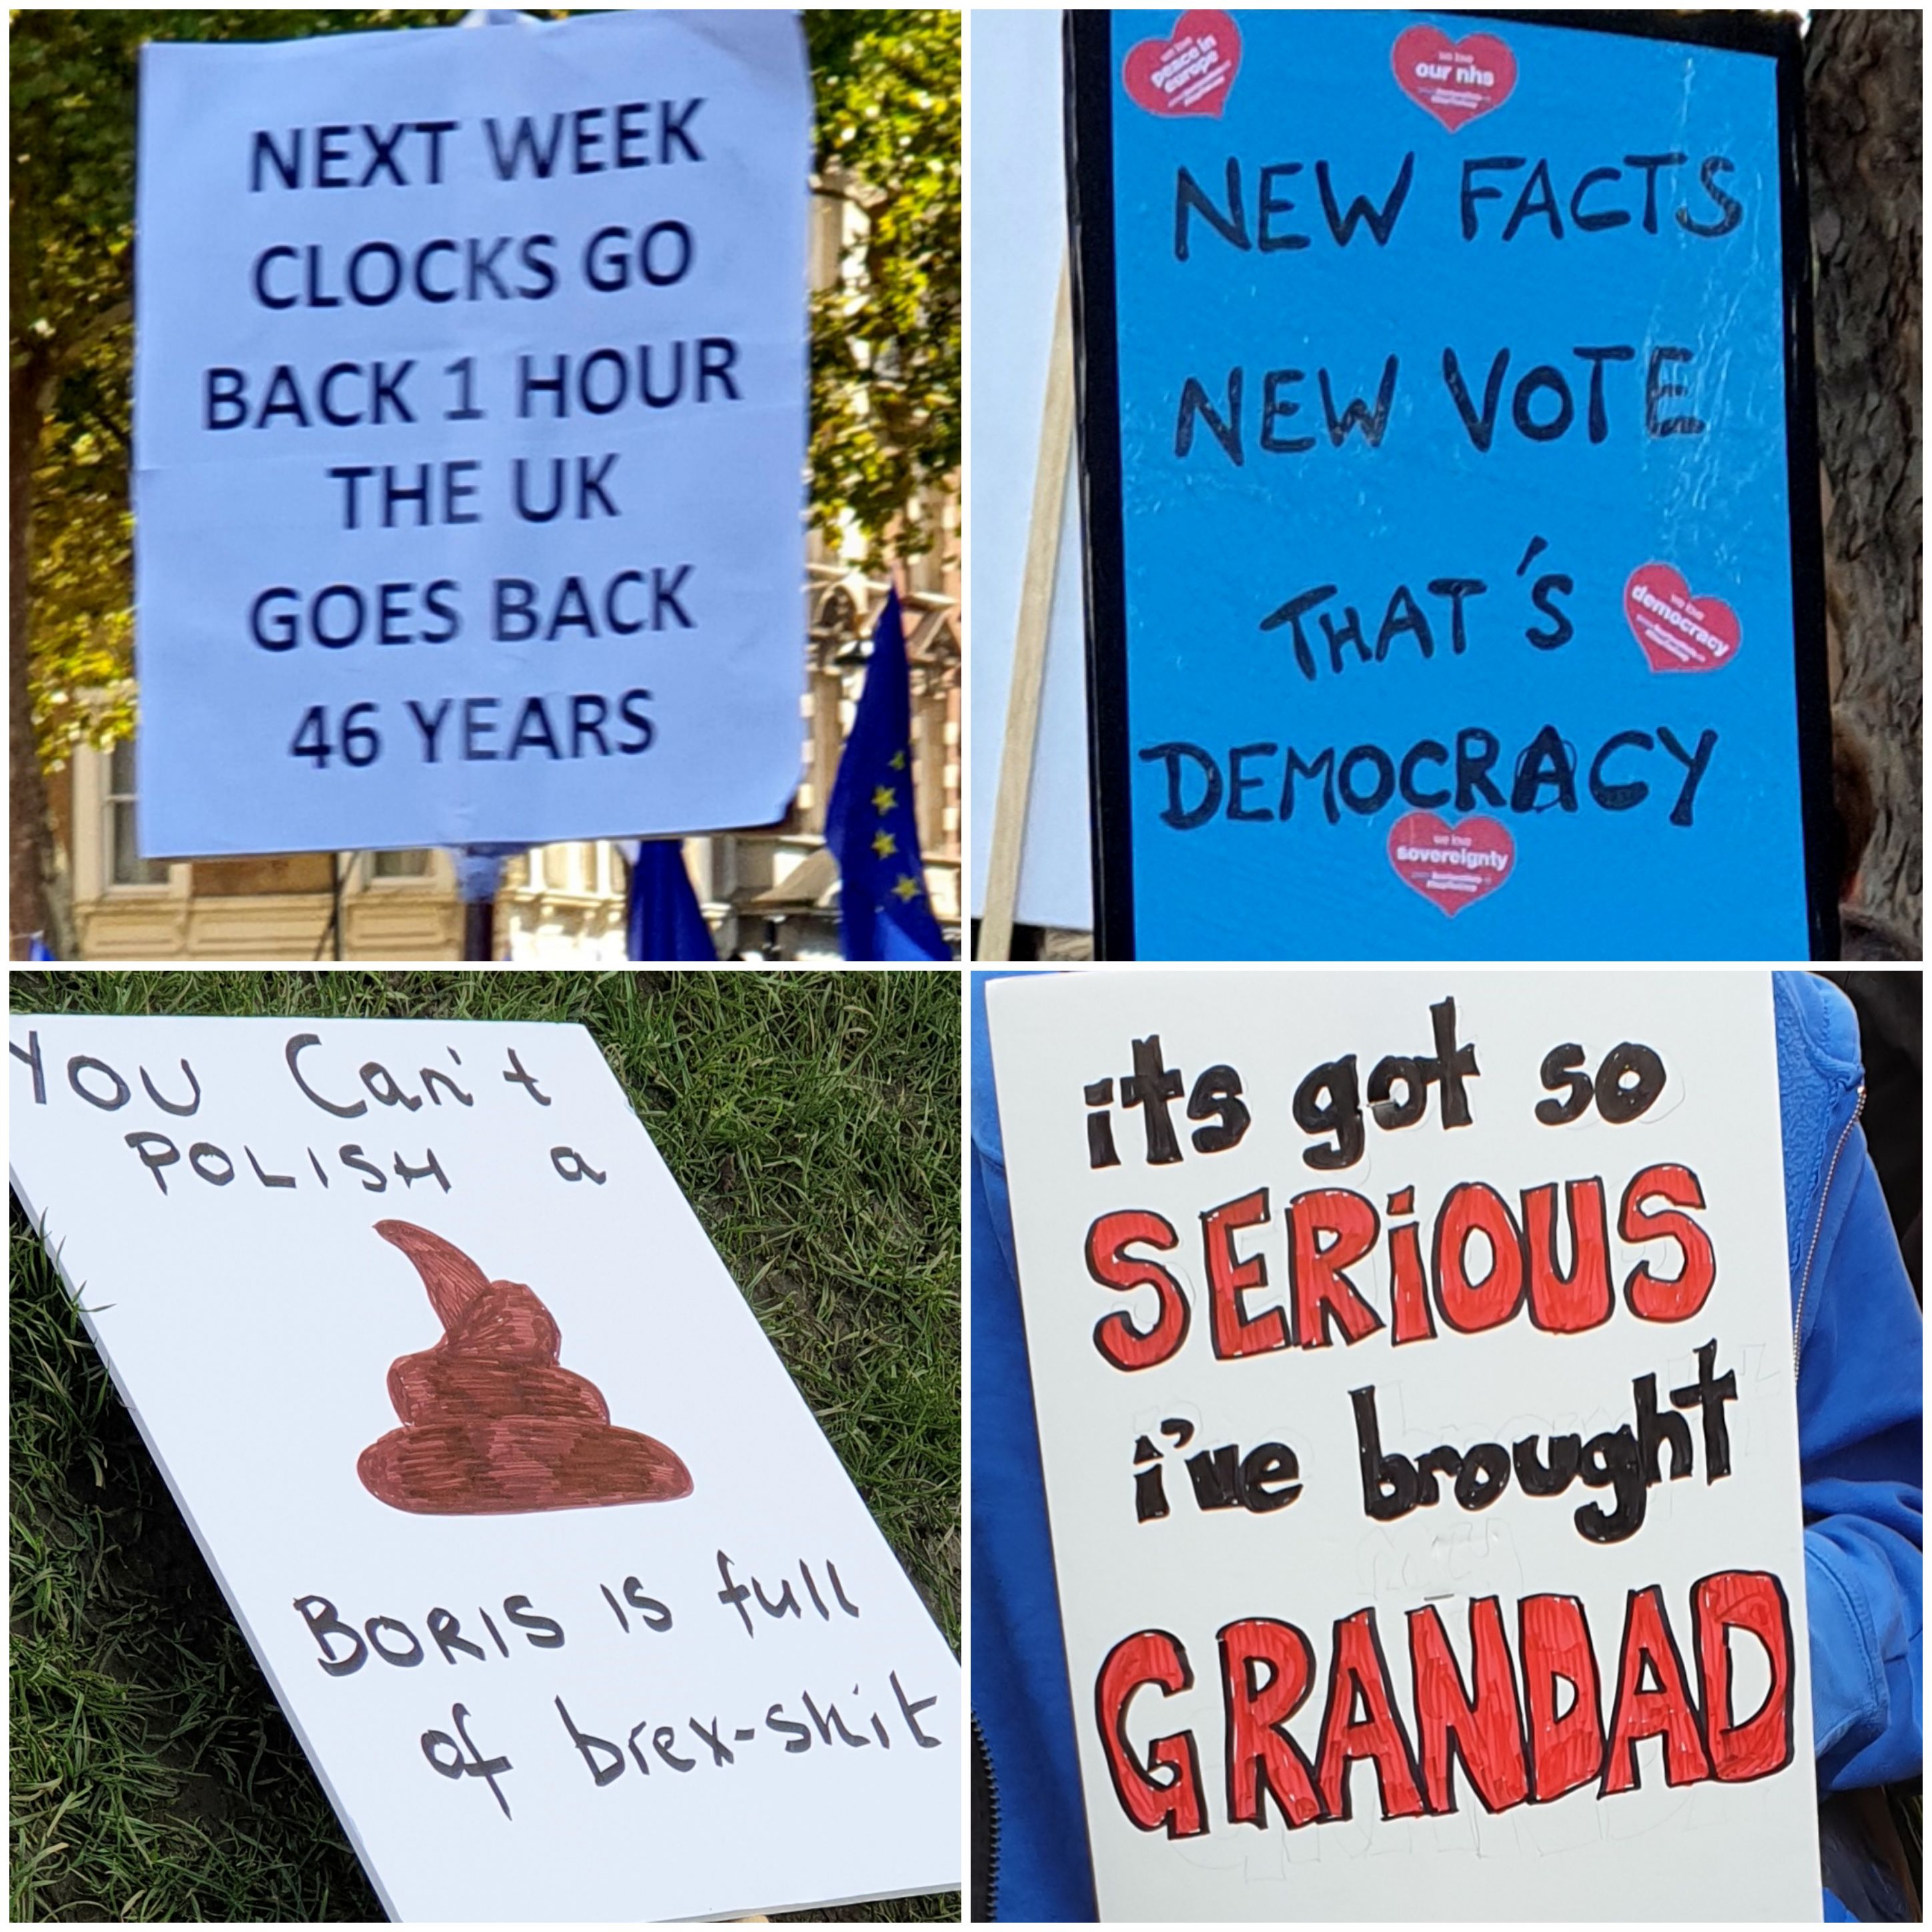 NEXT WEEK
CLOCKS GO
BACK 1 HOUR
THE UK
GOES BACK
46 YEARS
we love
peace in
europe
we love
our nhs
NEW FACTS
NEW VOTE
THAT'S
we love
democracy
DEMOCRACY
we love
sovereignty
You Can't
POLISH a
BORIS IS full
of brex-shit
its got so
SERiOUS
i've brought
GRANDAD